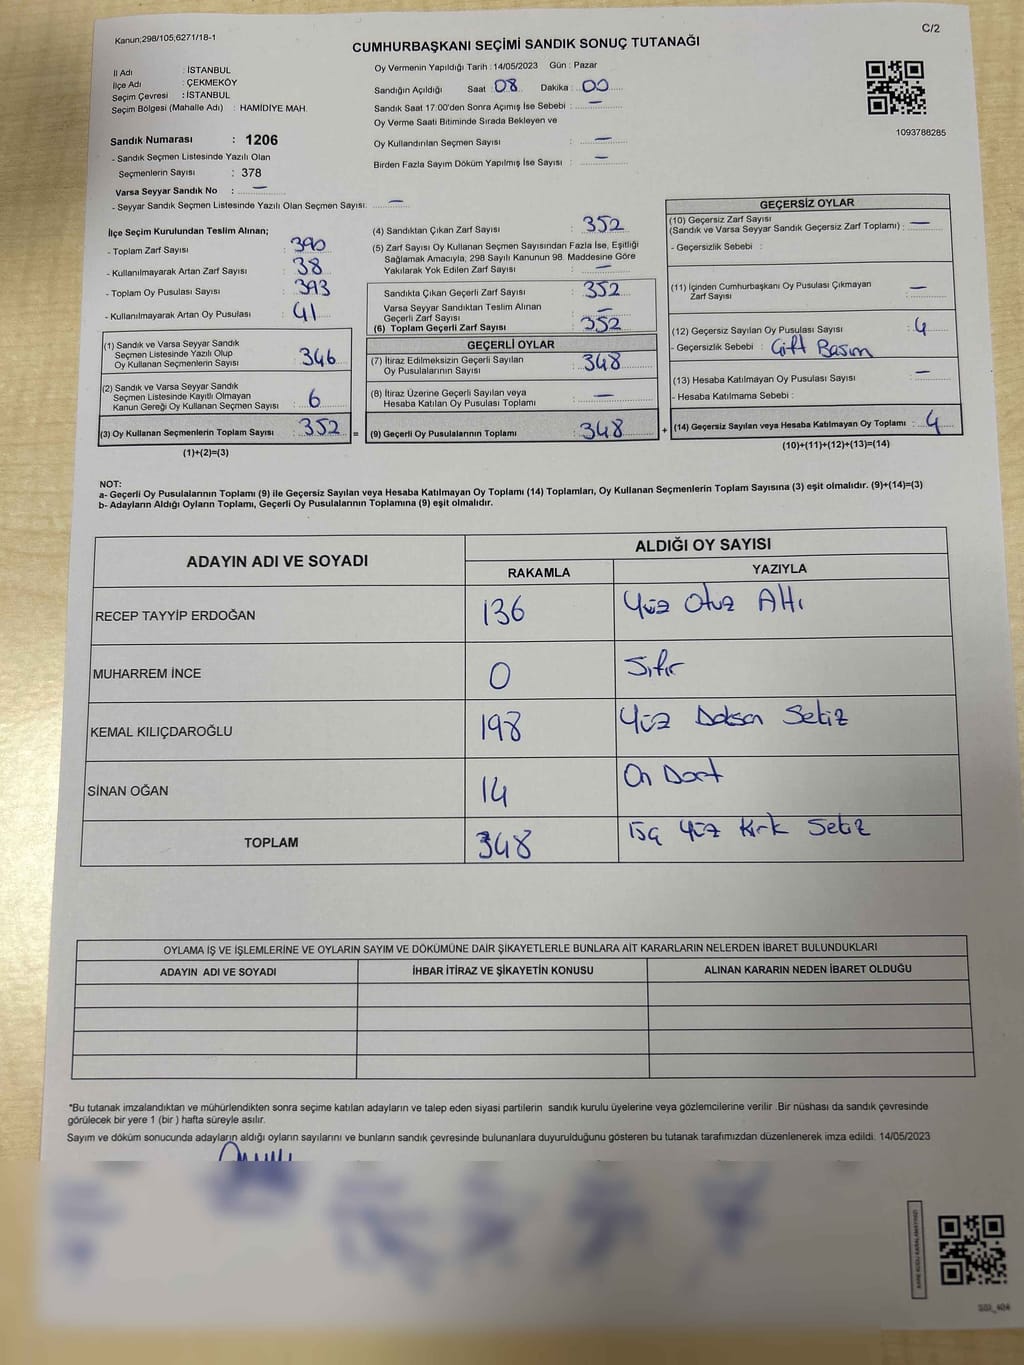 Kanun;298/105,6271/18-1
C/2
CUMHURBAŞKANI SEÇİMİ SANDIK SONUÇ TUTANAĞI
İl Adı : İSTANBUL
İlçe Adı : ÇEKMEKÖY
Seçim Çevresi : İSTANBUL
Seçim Bölgesi (Mahalle Adı) : HAMİDİYE MAH.
Sandık Numarası : 1206
- Sandık Seçmen Listesinde Yazılı Olan
Seçmenlerin Sayısı : 378
Varsa Seyyar Sandık No : —
- Seyyar Sandık Seçmen Listesinde Yazılı Olan Seçmen Sayısı: —
Oy Vermenin Yapıldığı Tarih : 14/05/2023 Gün : Pazar
Sandığın Açıldığı Saat 08 Dakika : 00
Sandık Saat 17:00'den Sonra Açımış İse Sebebi : —
Oy Verme Saati Bitiminde Sırada Bekleyen ve
Oy Kullandırılan Seçmen Sayısı : —
Birden Fazla Sayım Döküm Yapılmış İse Sayısı : —
1093788285
İlçe Seçim Kurulundan Teslim Alınan;
- Toplam Zarf Sayısı : 390
- Kullanılmayarak Artan Zarf Sayısı : 38
- Toplam Oy Pusulası Sayısı : 393
- Kullanılmayarak Artan Oy Pusulası : 41
(1) Sandık ve Varsa Seyyar Sandık
Seçmen Listesinde Yazılı Olup
Oy Kullanan Seçmenlerin Sayısı : 346
(2) Sandık ve Varsa Seyyar Sandık
Seçmen Listesinde Kayıtlı Olmayan
Kanun Gereği Oy Kullanan Seçmen Sayısı : 6
(3) Oy Kullanan Seçmenlerin Toplam Sayısı : 352
(1)+(2)=(3)
(4) Sandıktan Çıkan Zarf Sayısı : 352
(5) Zarf Sayısı Oy Kullanan Seçmen Sayısından Fazla İse, Eşitliği
Sağlamak Amacıyla, 298 Sayılı Kanunun 98. Maddesine Göre
Yakılarak Yok Edilen Zarf Sayısı : —
Sandıkta Çıkan Geçerli Zarf Sayısı : 352
Varsa Seyyar Sandıktan Teslim Alınan
Geçerli Zarf Sayısı : —
(6) Toplam Geçerli Zarf Sayısı : 352
GEÇERLİ OYLAR
(7) İtiraz Edilmeksizin Geçerli Sayılan
Oy Pusulalarının Sayısı : 348
(8) İtiraz Üzerine Geçerli Sayılan veya
Hesaba Katılan Oy Pusulası Toplamı : —
= (9) Geçerli Oy Pusulalarının Toplamı : 348
GEÇERSİZ OYLAR
(10) Geçersiz Zarf Sayısı
(Sandık ve Varsa Seyyar Sandık Geçersiz Zarf Toplamı) : —
- Geçersizlik Sebebi :
(11) İçinden Cumhurbaşkanı Oy Pusulası Çıkmayan
Zarf Sayısı : —
(12) Geçersiz Sayılan Oy Pusulası Sayısı : 4
- Geçersizlik Sebebi : Çift Basım
(13) Hesaba Katılmayan Oy Pusulası Sayısı : —
- Hesaba Katılmama Sebebi :
+ (14) Geçersiz Sayılan veya Hesaba Katılmayan Oy Toplamı : 4
(10)+(11)+(12)+(13)=(14)
NOT:
a- Geçerli Oy Pusulalarının Toplamı (9) ile Geçersiz Sayılan veya Hesaba Katılmayan Oy Toplamı (14) Toplamları, Oy Kullanan Seçmenlerin Toplam Sayısına (3) eşit olmalıdır. (9)+(14)=(3)
b- Adayların Aldığı Oyların Toplamı, Geçerli Oy Pusulalarının Toplamına (9) eşit olmalıdır.
ADAYIN ADI VE SOYADI
ALDIĞI OY SAYISI
RAKAMLA YAZIYLA
RECEP TAYYİP ERDOĞAN 136 Yüz Otuz Altı
MUHARREM İNCE 0 Sıfır
KEMAL KILIÇDAROĞLU 198 Yüz Doksan Sekiz
SİNAN OĞAN 14 On Dört
TOPLAM 348 Üç Yüz Kırk Sekiz
OYLAMA İŞ VE İŞLEMLERİNE VE OYLARIN SAYIM VE DÖKÜMÜNE DAİR ŞİKAYETLERLE BUNLARA AİT KARARLARIN NELERDEN İBARET BULUNDUKLARI
ADAYIN ADI VE SOYADI İHBAR İTİRAZ VE ŞİKAYETİN KONUSU ALINAN KARARIN NEDEN İBARET OLDUĞU
*Bu tutanak imzalandıktan ve mühürlendikten sonra seçime katılan adayların ve talep eden siyasi partilerin sandık kurulu üyelerine veya gözlemcilerine verilir .Bir nüshası da sandık çevresinde
görülecek bir yere 1 (bir ) hafta süreyle asılır.
Sayım ve döküm sonucunda adayların aldığı oyların sayılarını ve bunların sandık çevresinde bulunanlara duyurulduğunu gösteren bu tutanak tarafımızdan düzenlenerek imza edildi. 14/05/2023